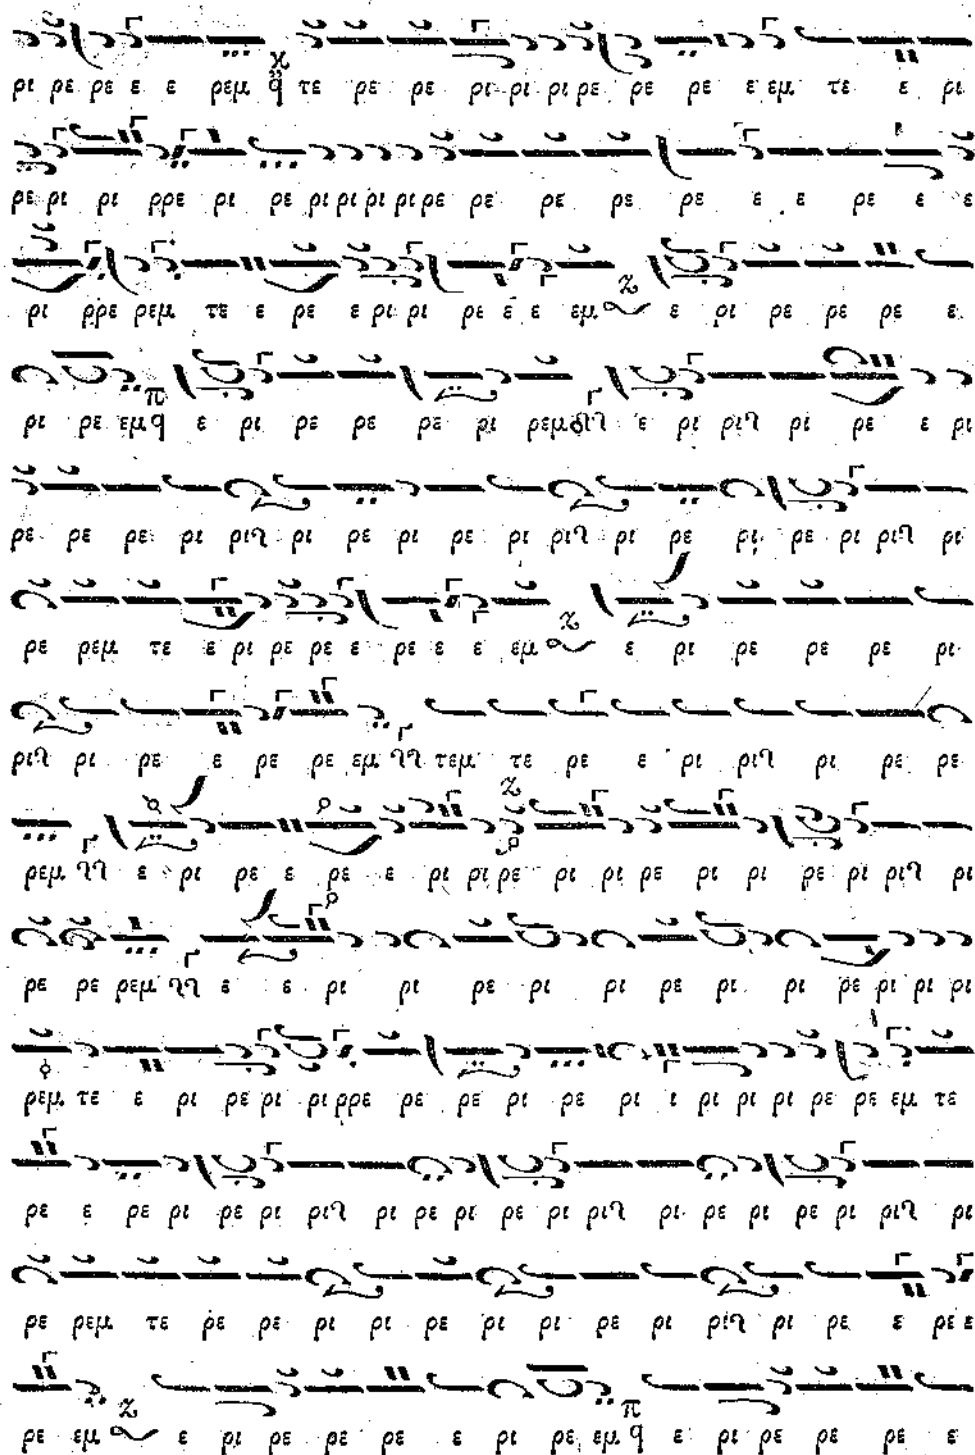 ρι ρε ρε ε ε ρεμ q τε ρε ρε ρι ρι ρι ρε ρε ρε ε εμ τε ε ρι
ρε ρι ρι ρρε ρι ρε ρι ρι ρι ρι ρε ρε ρε ρε ρε ε ε ρε ε ε
ρι ρρε ρεμ τε ε ρε ε ρι ρι ρε ε ε εμ ε ρι ρε ρε ρε ε
ρι ρε εμ q ε ρι ρε ρε ρε ρι ρεμ ε ρι ρι ρι ρε ε ρι
ρε ρε ρε ρι ρι ρι ρε ρι ρε ρι ρι ρι ρε ρι ρε ρι ρι ρι
ρε ρεμ τε ε ρι ρε ρε ε ρε ε ε εμ ε ρι ρε ρε ρε ρι
ρι ρι ρε ε ρε ρε εμ τεμ τε ρε ε ρι ρι ρι ρε ρε
ρεμ ε ρι ρε ε ρε ε ρι ρι ρε ρι ρι ρε ρι ρι ρε ρι ρι ρι
ρε ρε ρεμ ε ε ρι ρι ρε ρι ρι ρε ρι ρι ρε ρι ρι ρι
ρεμ τε ε ρι ρε ρι ρι ρρε ρε ρε ρι ρε ρι ι ρι ρι ρι ρε ρε εμ τε
ρε ε ρε ρι ρε ρι ρι ρι ρε ρι ρε ρι ρι ρι ρε ρι ρε ρι ρι ρι
ρε ρεμ τε ρε ρε ρι ρι ρε ρι ρι ρε ρι ρι ρι ρε ε ρε ε
ρε εμ ε ρι ρε ρε ρε ε ρι ρε εμ q ε ρι ρε ρε ρε ε